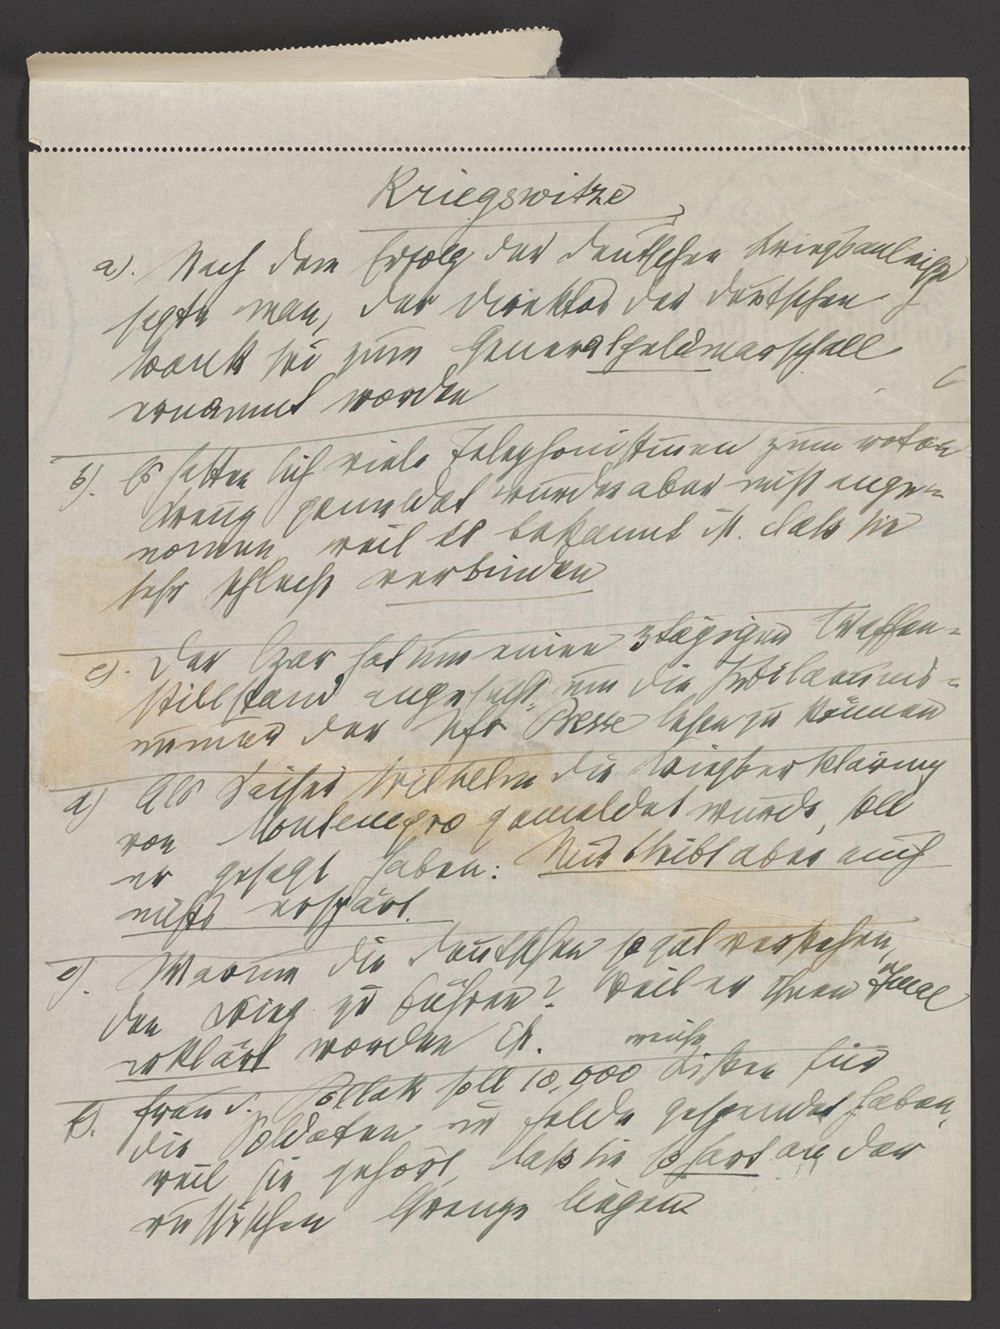 Kriegswitze
a). Nach dem Erfolg der deutschen Kriegsanleihe
sagte man, der Direktor der deutschen
bank sei zum Generalgeldmarschall
ernannt worden
b). Es hatten sich viele Telephonistinnen zum roten
Kreuz gemeldet wurden aber nicht ange=
nomen, weil es bekannt ist. dass sie
sehr schlecht verbinden
c). Der Czar hat um einen 3tägigen Waffen=
stillstand angesucht, um die Jubiläums=
numer der Presse lesen zu können
d) Als Kaiser Wilhelm die Kriegserklärung
von Montenegro gemeldet wurde, soll
er gesagt haben: Mir bleibt aber auch
nichts erspart.
e). Warum die Deutschen so gut verstehen,
den Krieg zu führen? Weil er Ihnen
erklärt worden ist.
weiche
f). Frau v. Pollak soll 10,000 Kissen für
die Soldaten im Felde gespendet haben,
weil sie gehört, dass sie so hart an der
russischen Grenze liegen